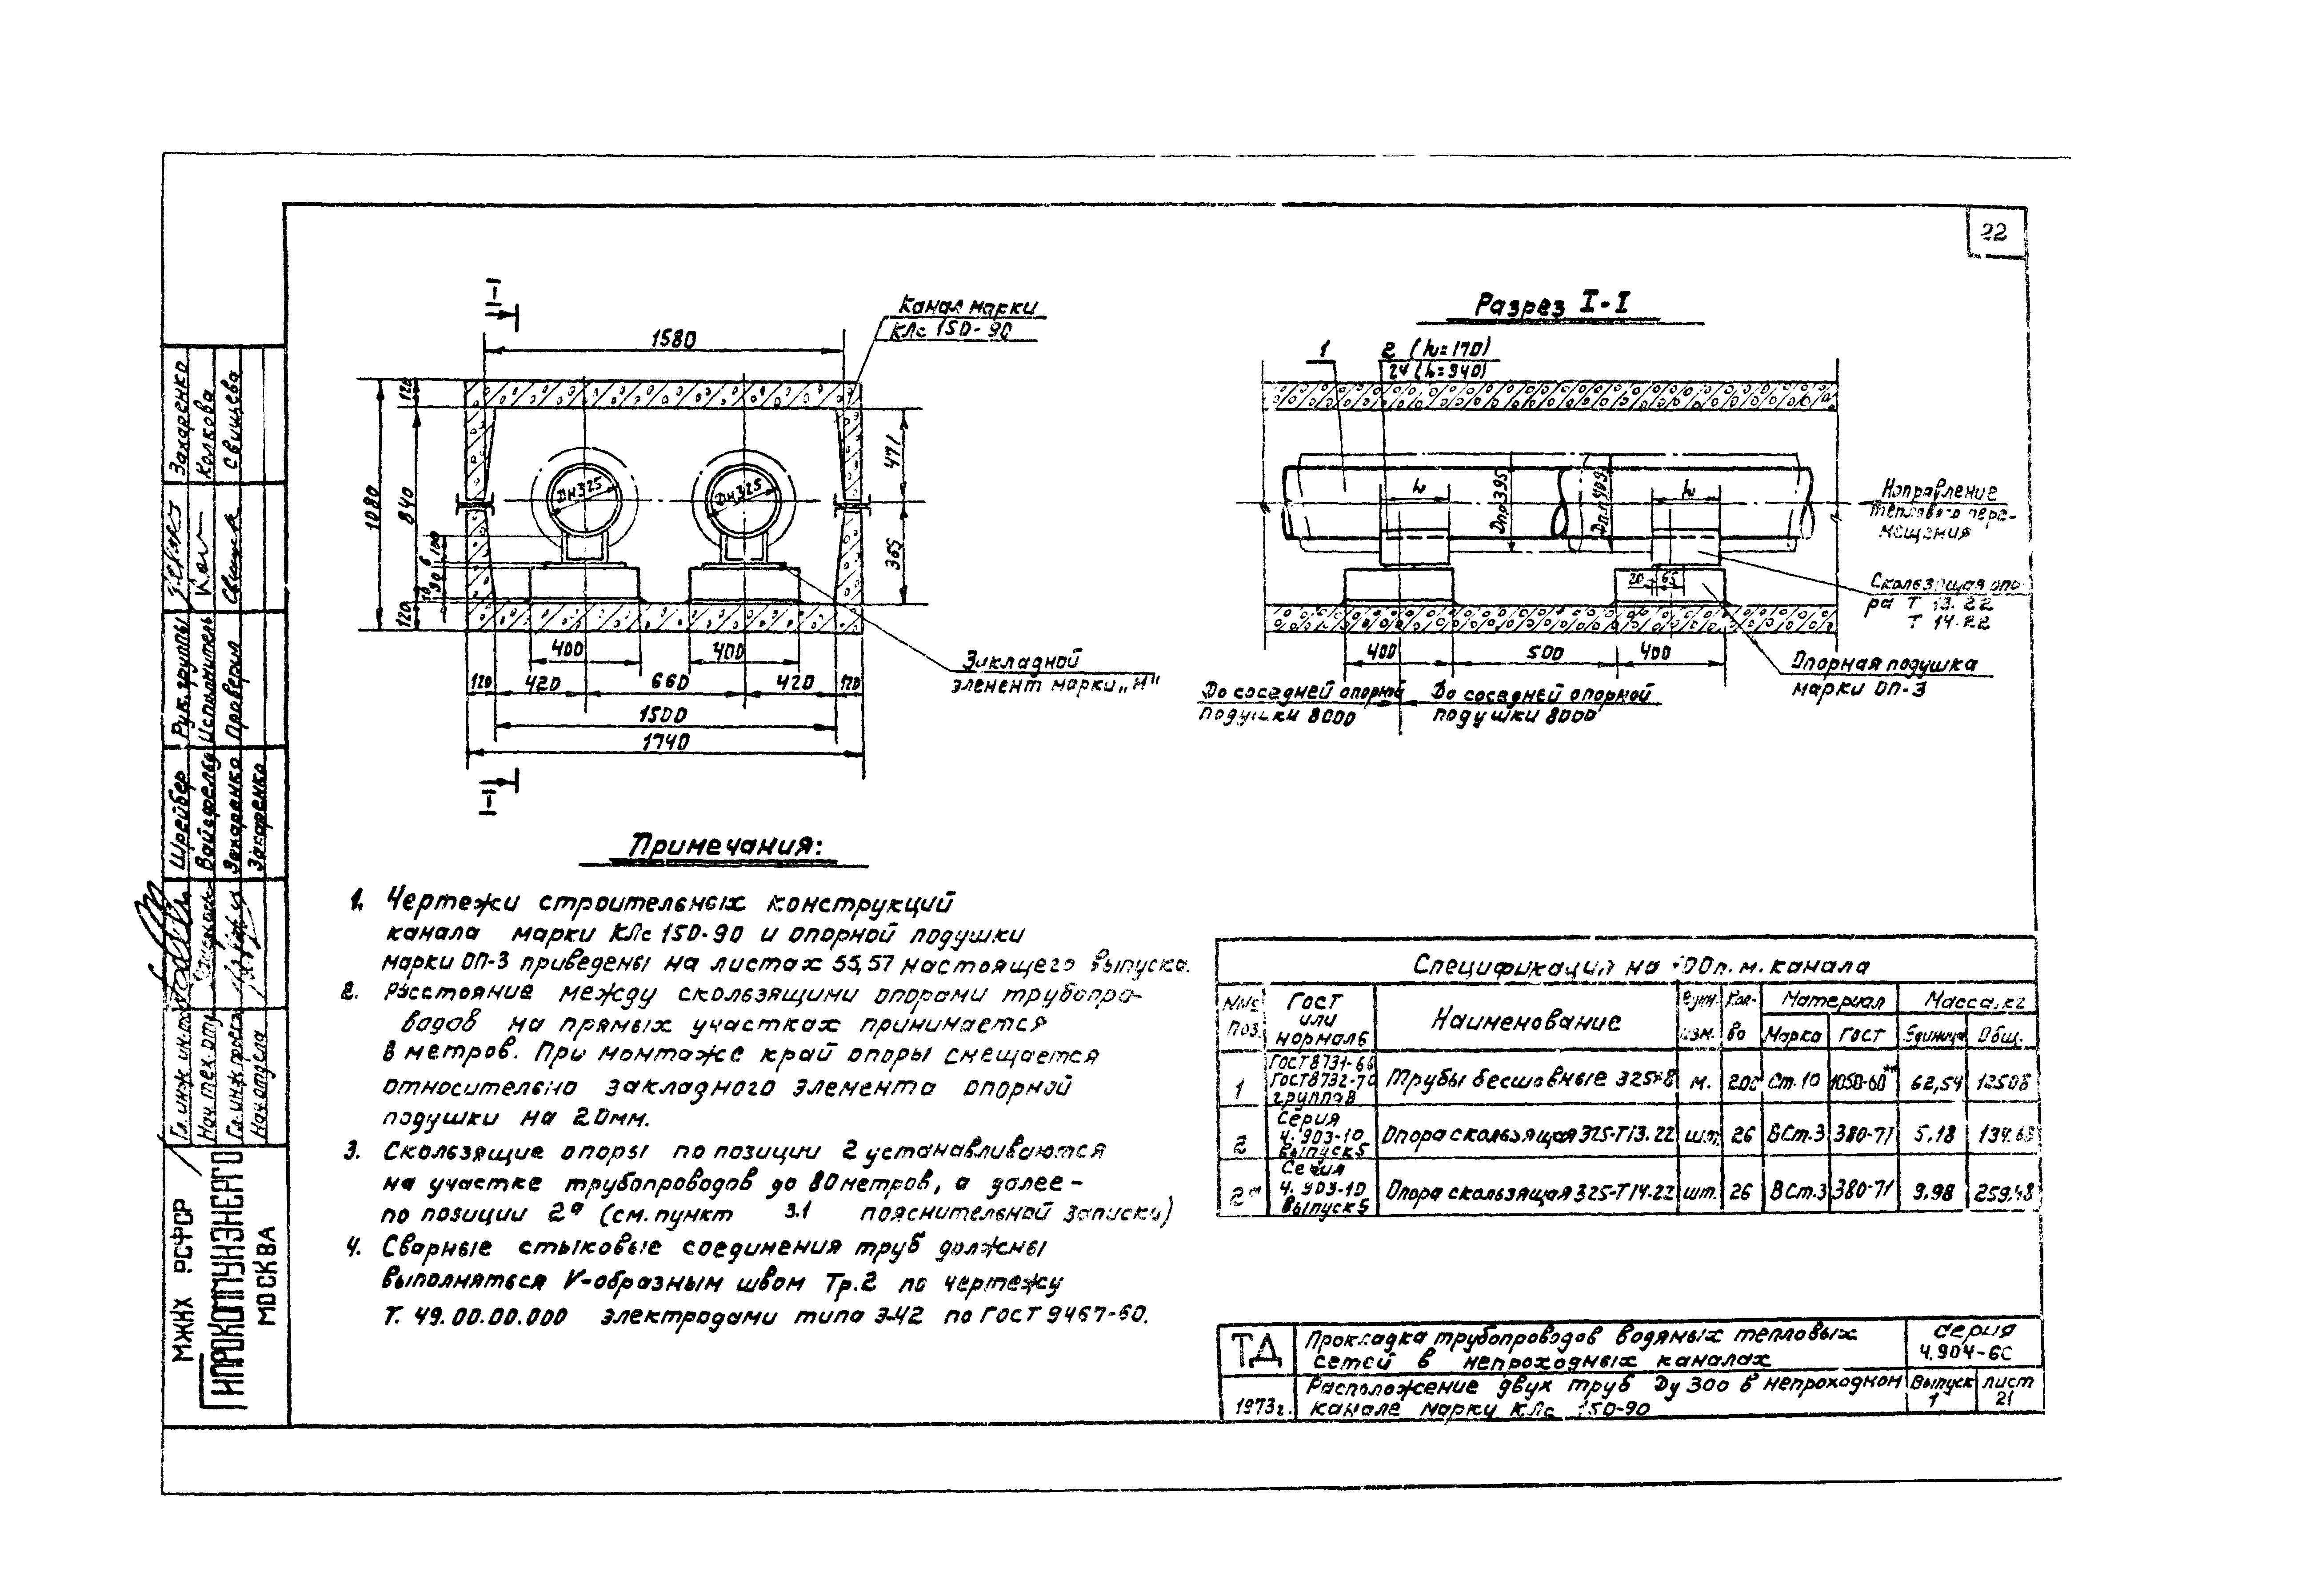 22
I
Канал марки
КЛс 150-90
1580
120
1080
840
471
365
Дн325
Дн325
100
6
90
10
120
400
400
120
420
660
420
120
1500
1740
I
Закладной
элемент марки „М"
Разрез I-I
1
2 (h=170)
2а (h=340)
h
h
Дп.о395
Дп.п409
Направление
теплового пере-
мещения
20
65
Скользящая опо-
ра Т 13.22
Т 14.22
400
500
400
Опорная подушка
марки ОП-3
До соседней опорной
подушки 8000
До соседней опорной
подушки 8000
Примечания:
1. Чертежи строительных конструкций
канала марки КЛс 150-90 и опорной подушки
марки ОП-3 приведены на листах 55,57 настоящего выпуска.
2. Расстояние между скользящими опорами трубопро-
водов на прямых участках принимается
8 метров. При монтаже край опоры смещается
относительно закладного элемента опорной
подушки на 20мм.
3. Скользящие опоры по позиции 2 устанавливаются
на участке трубопроводов до 80 метров, а далее –
по позиции 2а (см. пункт 3.1 пояснительной записки)
4. Сварные стыковые соединения труб должны
выполняться V-образным швом Тр.2 по чертежу
Т. 49.00.00.000 электродами типа Э-42 по ГОСТ 9467-60.
Спецификация на 100п.м. канала
№№ поз. ГОСТ или нормаль Наименование Един. изм. Кол-во Материал Масса, кг
Марка ГОСТ Единицы Общ.
1 ГОСТ 8731-66 ГОСТ 8732-70 группа В Трубы бесшовные 325×8 м. 200 Ст.10 1050-60** 62,54 12508
2 Серия 4.903-10 Выпуск 5 Опора скользящая 325-Т13.22 шт. 26 ВСт.3 380-71 5.18 134.68
2а Серия 4.903-10 Выпуск 5 Опора скользящая 325-Т14.22 шт. 26 ВСт.3 380-71 9.98 259.48
ТД
Прокладка трубопроводов водяных тепловых
сетей в непроходных каналах
серия
4.904-66
1973г.
Расположение двух труб Ду 300 в непроходном
канале марки КЛс 150-90
Выпуск
1
лист
21
Рук. группы Захаренко
Исполнитель Колкова
Проверил Свищева
Гл. инж. ин-та Шрейбер
Нач. тех. отд. Вайсфельд
Гл. инж. проекта Захаренко
Нач отдела Захаренко
МЖКХ РСФСР
ГИПРОКОММУНЭНЕРГО
МОСКВА